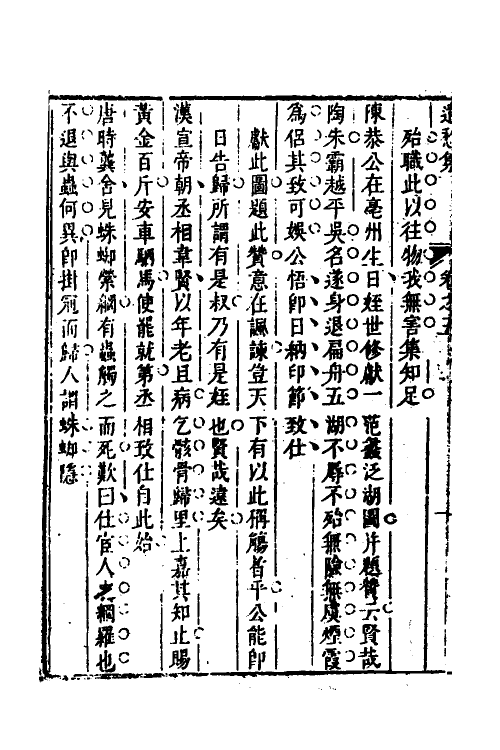 遣愁集 卷之五
殆職此以往物我無害集知足
陳恭公在亳州生日姪世修獻一范蠡泛湖圖并題贊云賢哉
陶朱霸越平吳名遂身退扁舟五湖不辱不殆無險無虞煙霞
為侶其致可娛公悟即日納印節致仕
獻此圖題此贊意在諷諫豈天下有以此稱觴者乎公能即
日告歸所謂有是叔乃有是姪也賢哉遠矣
漢宣帝朝丞相韋賢以年老且病乞骸骨歸里上嘉其知止賜
黃金百斤安車駟馬使罷就第丞相致仕自此始
唐時龔舍見蛛蝴縈網有蟲觸之而死歎曰仕宦人之網羅也
不退與蟲何異即掛冠而歸人謂蛛蝴隱